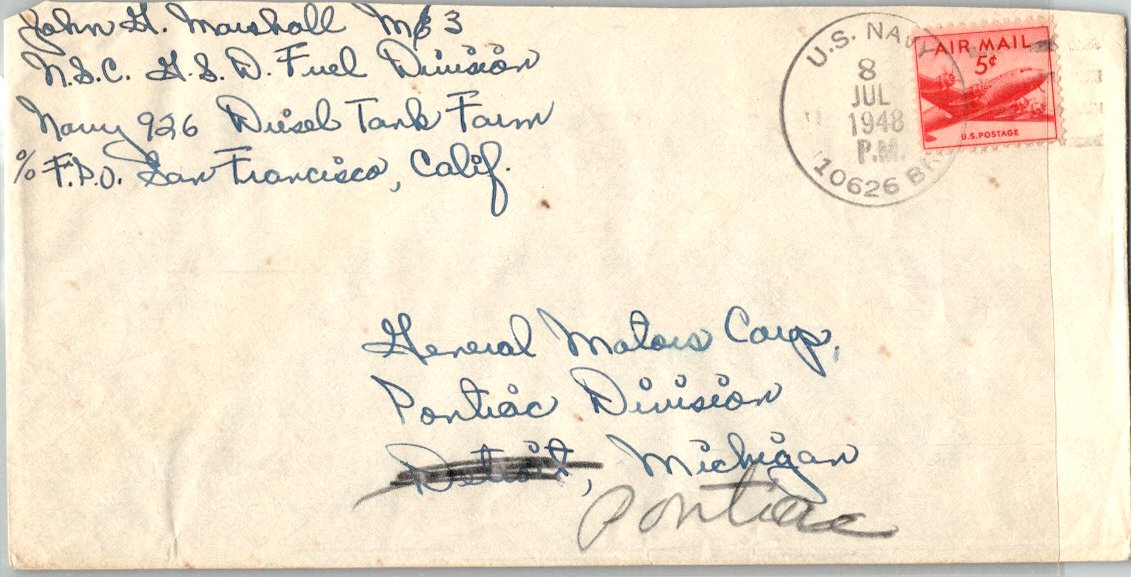 John G. Marshall M 3
N.S.C. G.S.D. Fuel Division
Navy 926 Diesel Tank Farm
% F.P.O. San Francisco, Calif.
U.S. NAVY
8
JUL
1948
P.M.
10626 BR.
AIR MAIL
5¢
U.S. POSTAGE
General Motors Corp.
Pontiac Division
Detroit, Michigan
Pontiac